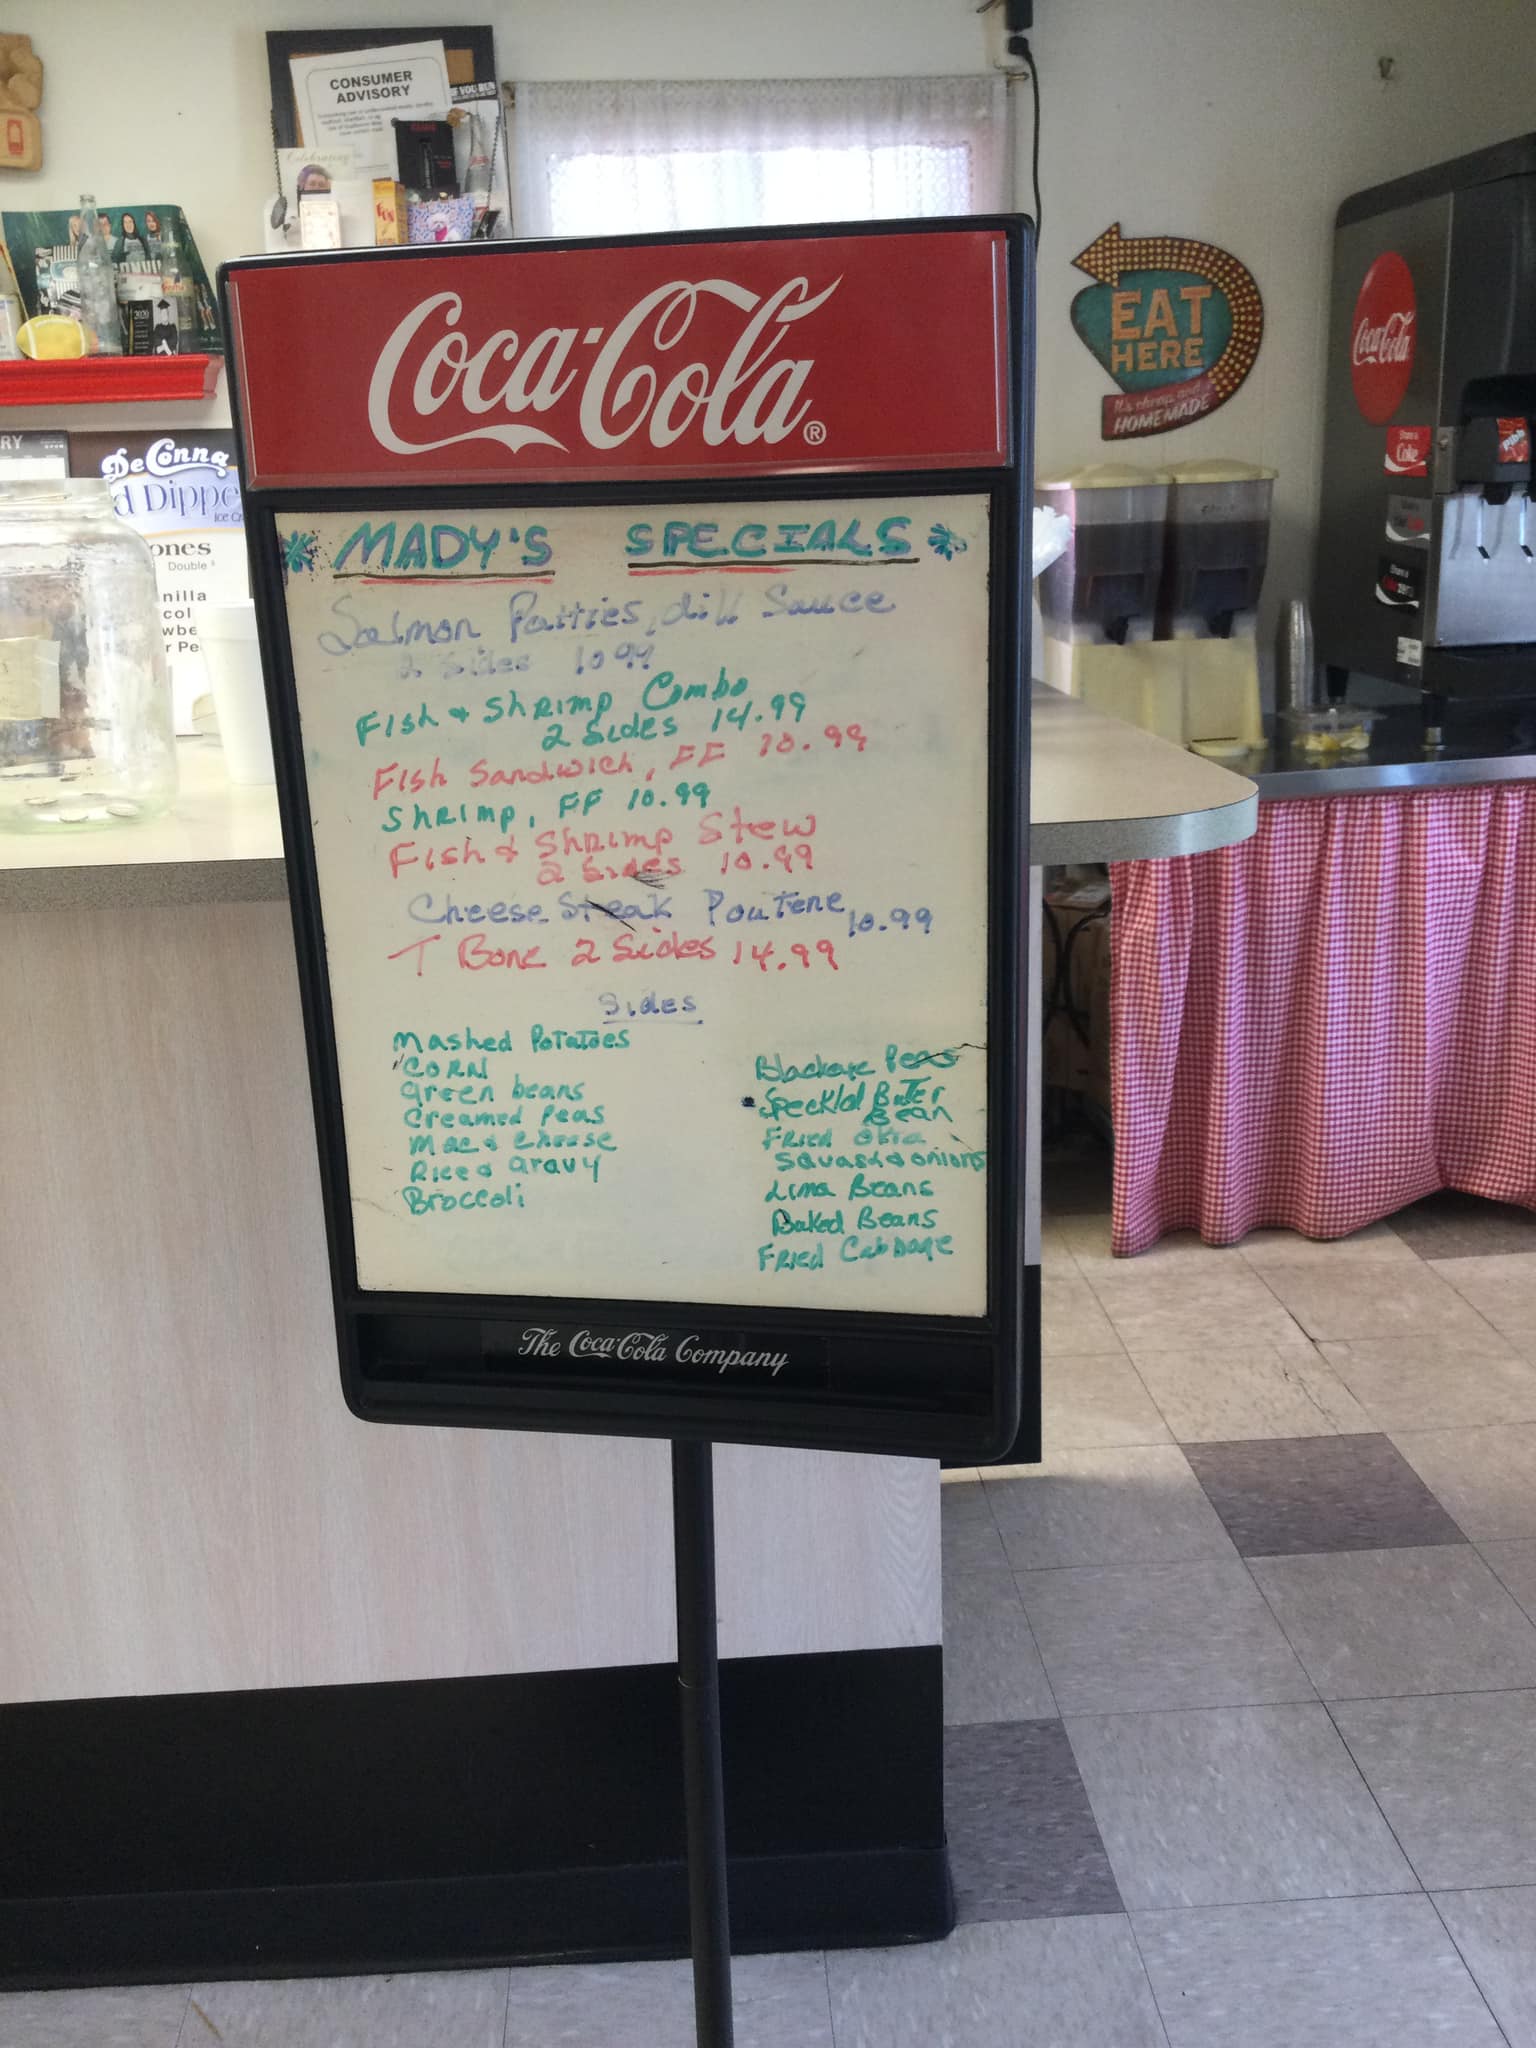 CONSUMER
ADVISORY
IF YOU RUN
Celebrating
FUN
2020
RY
DeConna
d Dippe
Ice Cr
ones
Double
nilla
col
wbe
r Pe
EAT
HERE
It's cheap and
HOMEMADE
Coca-Cola
Share a
Coke
Share a
Pibb
Coca-Cola®
* MADY'S SPECIALS *
Salmon Patties, dill Sauce
2 Sides 10 99
Fish & Shrimp Combo
2 Sides 14.99
Fish Sandwich, FF 10.99
Shrimp, FF 10.99
Fish & Shrimp Stew
2 Sides 10.99
Cheese Steak Poutene 10.99
T Bone 2 Sides 14.99
Sides
Mashed Potatoes
Corn
Green beans
Creamed Peas
Mac & Cheese
Rice & Gravy
Broccoli
Blackeye Peas
Speckld Butter
Bean
Fried Okra
Squash & onions
Lima Beans
Baked Beans
Fried Cabbage
The Coca-Cola Company